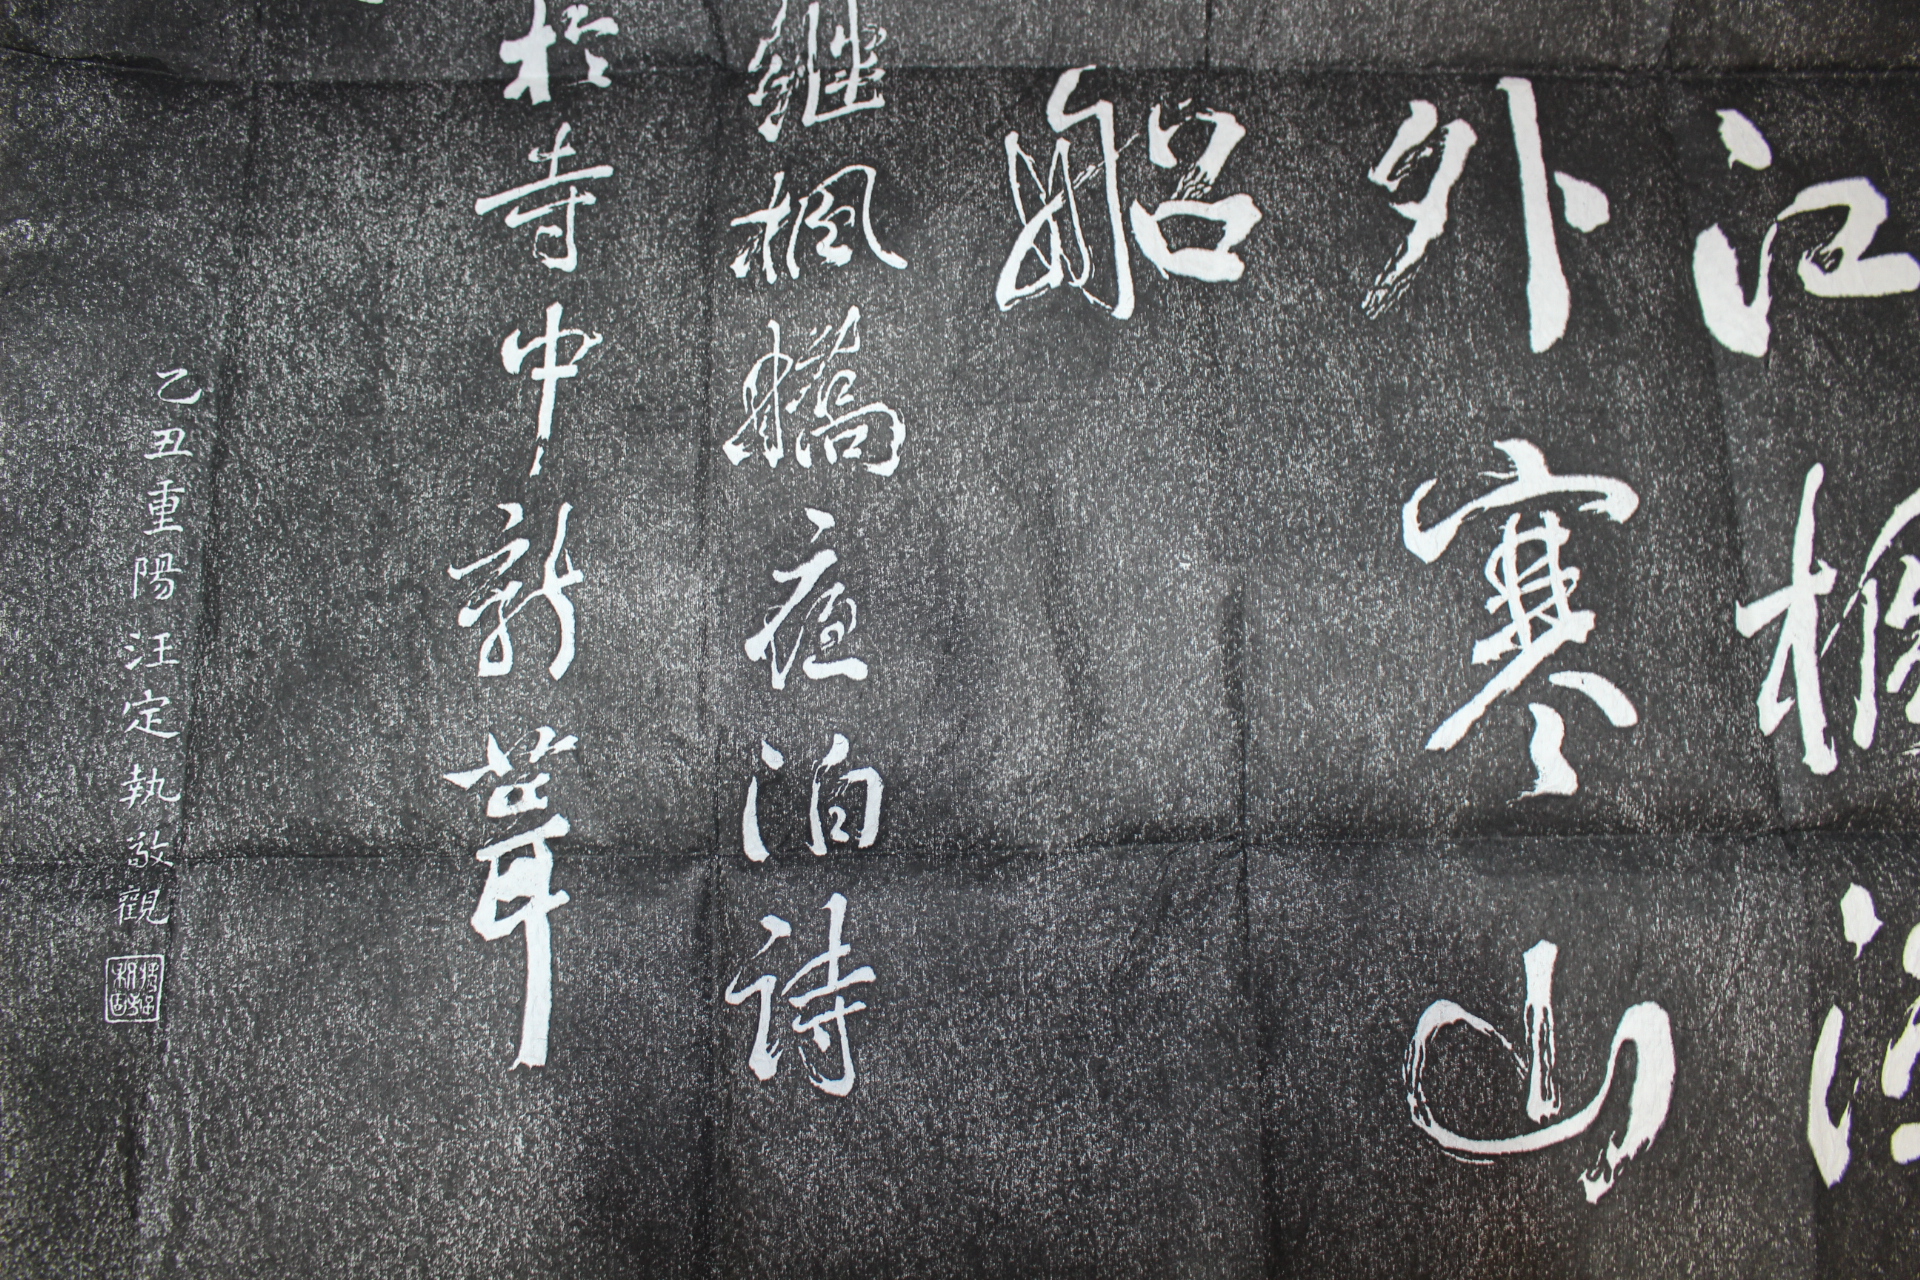 江楓
外寒山
船
繼楓橋夜泊詩
於寺中新葺
乙丑重陽汪定執敬觀